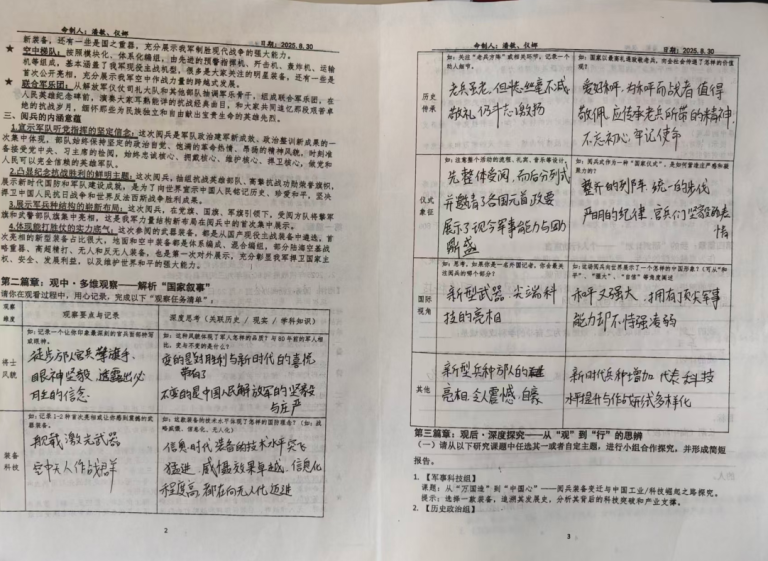 命制人：潘敏、仅娜
日期：2025.8.30
新装备，还有一些是国之重器，充分展示我军制胜现代战争的强大能力。
★ 空中梯队：按照模块化、体系化编组，由先进的预警指挥机、歼击机、轰炸机、运输
机等组成，基本涵盖了我军现役主战机型，很多是大家关注的明星装备，还有一些是
首次公开亮相，充分展示我军空中作战力量的跨越式发展。
★ 联合军乐团：从解放军仪仗司礼大队和其他部队抽调军乐骨干，组成联合军乐团，在
人民英雄纪念碑前，演奏大家耳熟能详的抗战经典曲目，和大家共同追忆那段艰苦卓
绝的抗战岁月，缅怀那些为民族独立和自由献出宝贵生命的英雄先烈。
三、阅兵的内涵意蕴
1.宣示军队听党指挥的坚定信念：这次阅兵是军队政治建军新成效、政治整训新成果的一
次集中体现，部队始终保持坚定的政治自觉、饱满的革命热情、昂扬的精神风貌，时刻准
备接受党中央、习主席的检阅，始终忠诚核心、拥戴核心、维护核心、捍卫核心，做党和
人民可以完全信赖的英雄军队。
2.凸显纪念抗战胜利的鲜明主题：这次阅兵，抽组抗战英雄部队、高擎抗战功勋荣誉旗帜，
展示新时代国防和军队建设成就，是为了向世界宣示中国人民铭记历史、珍爱和平，坚决
捍卫中国人民抗日战争和世界反法西斯战争胜利成果。
3.展示军兵种结构的崭新布局：这次阅兵，在党旗、国旗、军旗引领下，受阅方队将擎军
旗和武警部队旗集中亮相，这是我军力量结构布局在阅兵中的首次集中展示。
4.体现能打胜仗的实力底气：这次参阅的武器装备，都是从国产现役主战装备中遴选，首
次亮相的新型装备占比很大，地面和空中装备都是体系编成、混合编组，部分陆海空基战
略重器、高超精打、无人和反无人装备，也是第一次对外展示，充分彰显我军捍卫国家主
权、安全、发展利益，以及维护世界和平的强大能力。
第二篇章：观中·多维观察——解析“国家叙事”
请你在观看过程中，用心记录，完成以下“观察任务清单”：
观察维度
观察要点与记录
深度思考（关联历史 / 现实 / 学科知识）
将士风貌
如：记录一个让你印象最深刻的官兵面部特写或眼神。
徒步方队官兵擎旗手
眼神坚毅 透露出必
胜的信念
如：这种风貌体现了军人怎样的品质？与80年前的军人相比，变与不变的是什么？
变的是对胜利与新时代的喜悦
不变的是中国人民解放军的坚毅
与庄严
装备科技
如：记录1-2种首次亮相或让你感到震撼的武器装备。
舰载激光武器
空中无人作战群
如：这款装备的技术水平体现了怎样的国防理念？（如：战略威慑、信息化、无人化）
信息时代 装备的技术水平突飞
猛进 威慑效果卓越 信息化
程度高 都在向无人化迈进
2
命制人：潘敏、仅娜
日期：2025.8.30
历史传承
如：关注“老兵方阵”或相关环节，记录一个感人细节。
老兵虽老，但装丝毫不减
敬礼仍斗志激扬
如：国家以最高礼遇致敬老兵，向全社会传递了怎样的价值观？
爱好和平、为和平而战者值得
敬佩 应传承老兵所带的精神
不忘初心 牢记使命
仪式象征
如：注意整个活动的流程、礼宾、音乐等设计。
先整体受阅 而后分列式
并邀请了各国元首政要
展示了现今军事能力与国力
鼎盛
如：阅兵式作为一种“国家仪式”，是如何营造庄严感和凝聚力的？
整齐的列阵 统一的步伐
严明的纪律 官兵们坚毅的表
情
国际视角
如：思考，如果你是一名外国记者，你会最关注阅兵的哪个部分？
新型武器 尖端科
技的亮相
如：这场阅兵向世界展示了一个怎样的中国形象？（可从“和平”、“强大”、“自信”等角度阐述
和平又强大 拥有顶尖军事
能力却不恃强凌弱
其他
新型兵种部队的
亮相 令人震撼 自豪
新时代兵种增加 代表科技
水平提升与作战形式多样化
第三篇章：观后·深度探究——从“观”到“行”的思辨
（一）请从以下研究课题中任选其一或者自定主题，进行小组合作探究，并形成简短
报告。
1. 【军事科技组】
课题：从“万国造”到“中国心”——阅兵装备变迁与中国工业/科技崛起之路探究。
提示：选择一款装备，追溯其发展史，分析其背后的科技突破和产业支撑。
2. 【历史政治组】
3